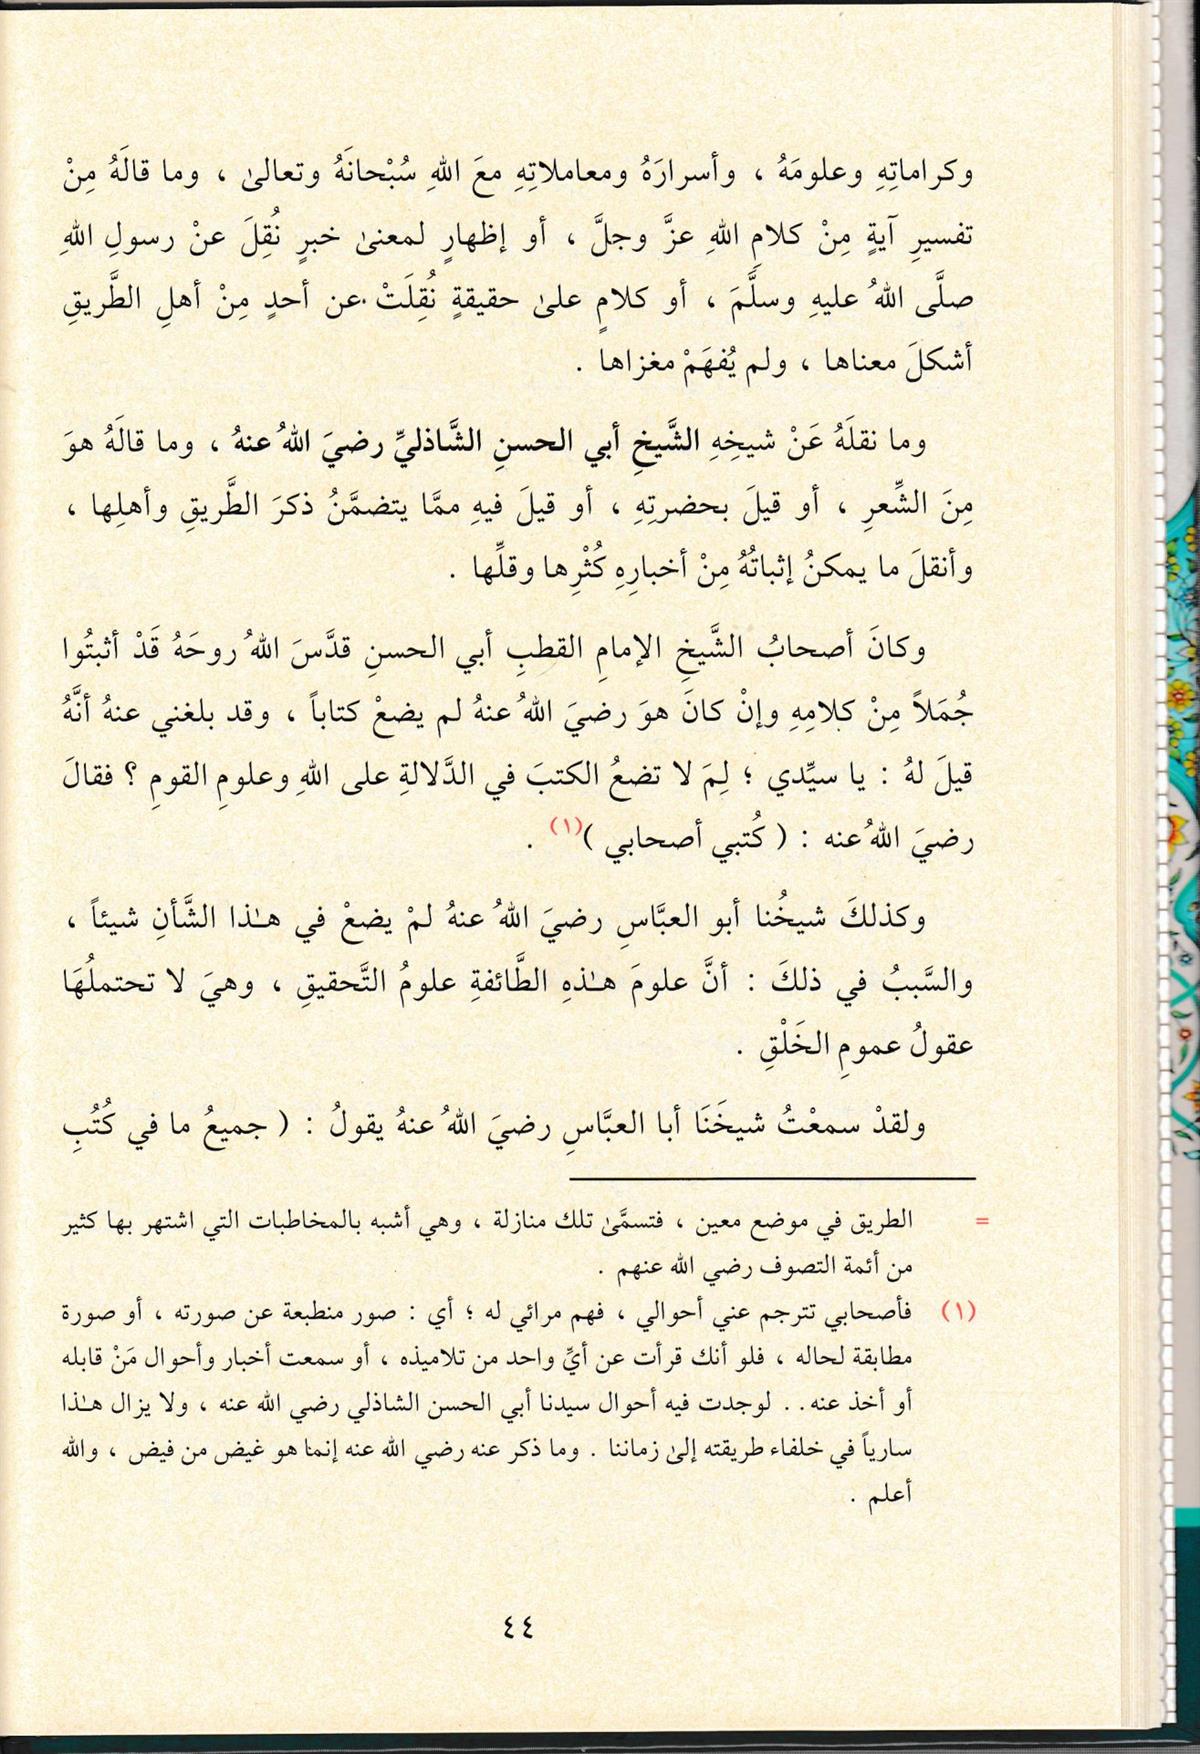 وكراماتِهِ وعلومَهُ ، وأسرارَهُ ومعاملاتِهِ معَ اللهِ سُبْحانَهُ وتعالىٰ ، وما قالَهُ مِنْ
تفسيرِ آيةٍ مِنْ كلامِ اللهِ عزَّ وجلَّ ، أو إظهارٍ لمعنىٰ خبرٍ نُقِلَ عنْ رسولِ اللهِ
صلَّى اللهُ عليهِ وسلَّمَ ، أو كلامٍ علىٰ حقيقةٍ نُقِلَتْ عن أحدٍ مِنْ أهلِ الطَّريقِ
أشكلَ معناها ، ولم يُفهَمْ مغزاها .
وما نقلَهُ عَنْ شيخِهِ الشَّيخِ أبي الحسنِ الشَّاذليِّ رضيَ اللهُ عنهُ ، وما قالَهُ هوَ
مِنَ الشِّعرِ ، أو قيلَ بحضرتِهِ ، أو قيلَ فيهِ ممَّا يتضمَّنُ ذكرَ الطَّريقِ وأهلِها ،
وأنقلَ ما يمكنُ إثباتُهُ مِنْ أخبارِهِ كُثْرِها وقلِّها .
وكانَ أصحابُ الشَّيخِ الإمامِ القطبِ أبي الحسنِ قدَّسَ اللهُ روحَهُ قَدْ أثبتُوا
جُمَلاً مِنْ كلامِهِ وإنْ كانَ هوَ رضيَ اللهُ عنهُ لم يضعْ كتاباً ، وقد بلغني عنهُ أنَّهُ
قيلَ لهُ : يا سيِّدي ؛ لِمَ لا تضعُ الكتبَ في الدَّلالةِ على اللهِ وعلومِ القومِ ؟ فقالَ
رضيَ اللهُ عنه : ( كُتبي أصحابي )(١) .
وكذلكَ شيخُنا أبو العبَّاسِ رضيَ اللهُ عنهُ لمْ يضعْ في هـٰذا الشَّأنِ شيئاً ،
والسَّببُ في ذلكَ : أنَّ علومَ هـٰذهِ الطَّائفةِ علومُ التَّحقيقِ ، وهيَ لا تحتملُهَا
عقولُ عمومِ الخَلْقِ .
ولقدْ سمعْتُ شيخَنَا أبا العبَّاسِ رضيَ اللهُ عنهُ يقولُ : ( جميعُ ما في كُتُبِ
= الطريق في موضع معين ، فتسمَّىٰ تلك منازلة ، وهي أشبه بالمخاطبات التي اشتهر بها كثير
من أئمة التصوف رضي الله عنهم .
(١) فأصحابي تترجم عني أحوالي ، فهم مرائي له ؛ أي : صور منطبعة عن صورته ، أو صورة
مطابقة لحاله ، فلو أنك قرأت عن أيِّ واحد من تلاميذه ، أو سمعت أخبار وأحوال مَنْ قابله
أو أخذ عنه.. لوجدت فيه أحوال سيدنا أبي الحسن الشاذلي رضي الله عنه ، ولا يزال هـٰذا
سارياً في خلفاء طريقته إلىٰ زماننا . وما ذكر عنه رضي الله عنه إنما هو غيض من فيض ، والله
أعلم .
٤٤